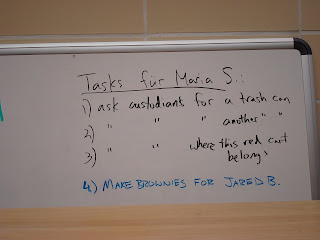 Tasks für Maria S.:
1) ask custodians for a trash can
2) " " " another " "
3) " " where this red cart
belongs
4) MAKE BROWNIES FOR JARED B.